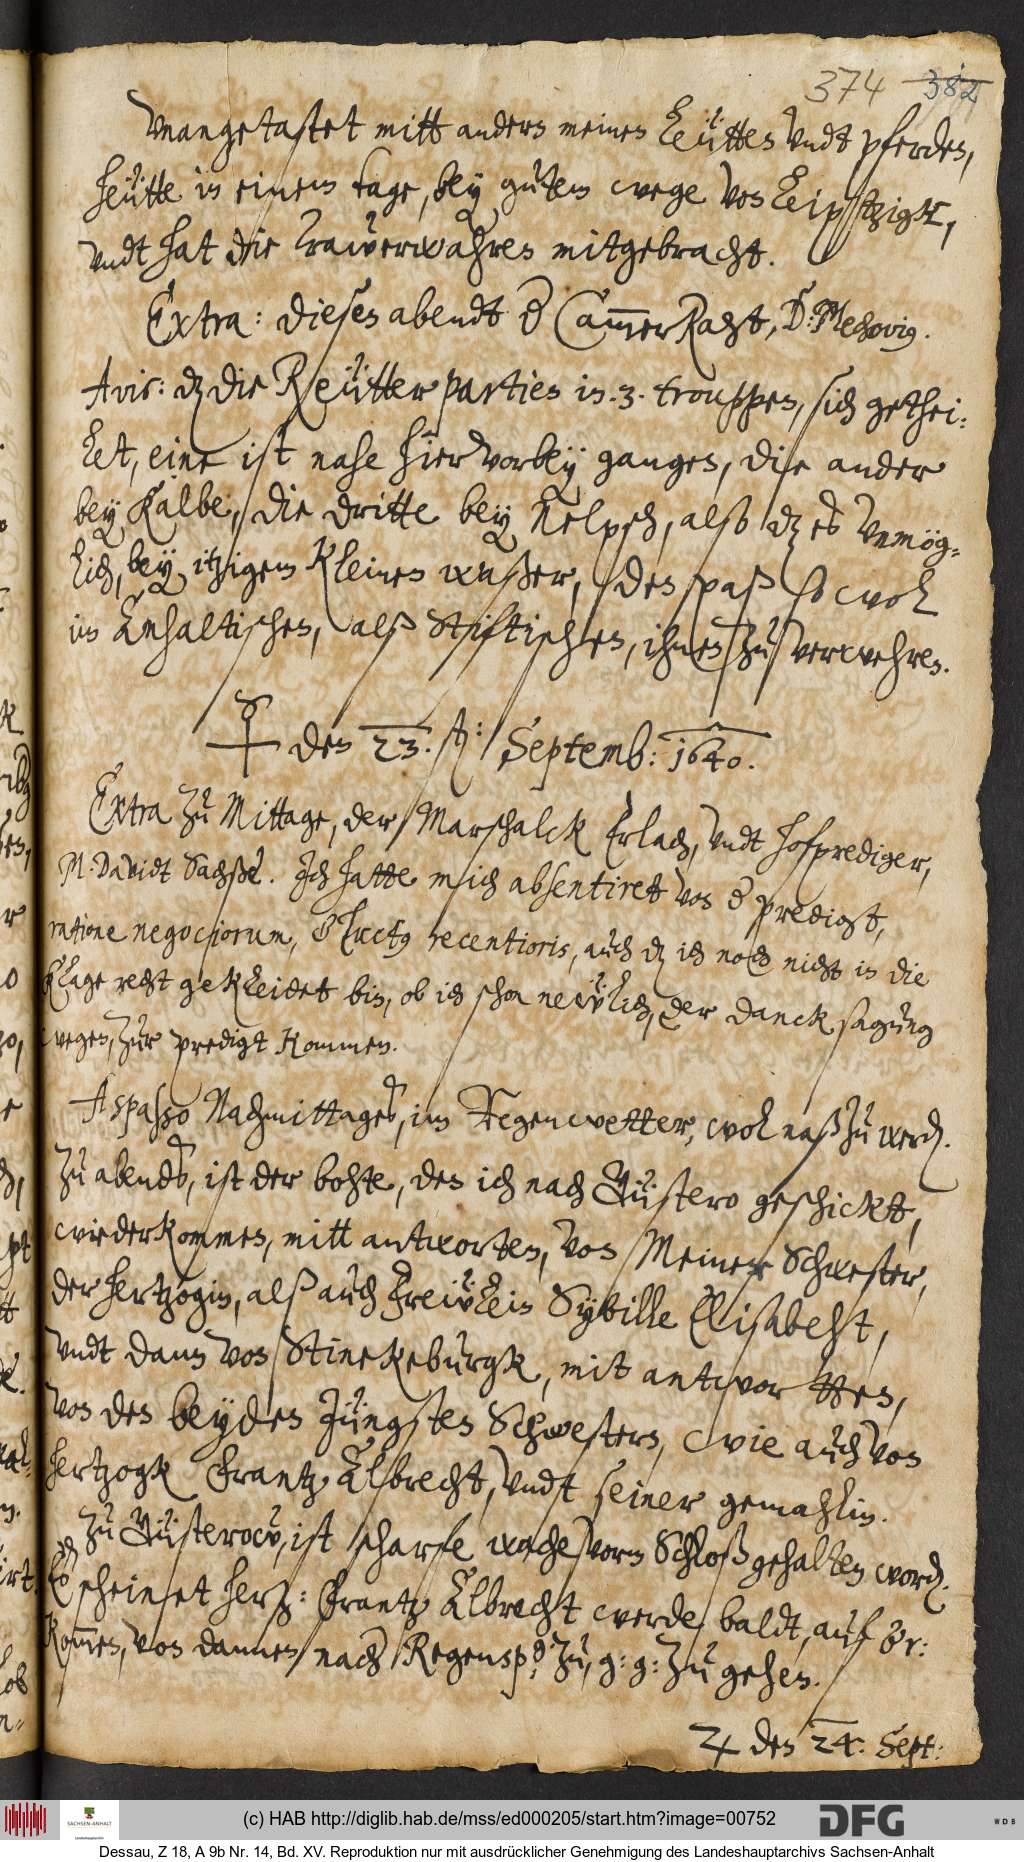 374 382
Vnangetastet mitt andern meinen Leütten vndt pferden,
heütte in einem tage, bey gutem wege von Leiptzigk,
vndt hat die trawerwahren mitgebracht.
Extra: diesen abendt der Cammer Raht, D: Mechovius.
Avis: daß die Reütter partien in .3. trouppen, sich gethei-
let, eine ist nahe hiervorbey gangen, die ander
bey Kalbe, die dritte bey Aelpsch, also daß es vnmög-
lich, bey itzigem kleinen waßer, den paß so wol
im Anhaltischen, alß Stiftischen, ihnen zu verwehren.
☿ den 23. sten: Septemb: 1640.
Extra zu Mittage, der Marschalck Erlach, vndt hofprediger,
M. Davidt Sachße. Ich hatte mich absentiret von der predigt,
ratione negociorum, & luctus recentioris, auch daß ich noch nicht in die
klage recht gekleidet bin, ob ich schon neẅlich, der dancksagung
wegen, zur predigt kommen.
A spasso Nachmittages, im Regenwetter, wol naß zu werden.
Zu abends, ist der bohte, den ich nach Güstero geschickt,
wiederkommen, mitt antworten, von Meiner Schwester,
der hertzogin, alß auch Freẅlein Sybille Elisabeht,
vndt dann von Stinckeburgk, mit antwortten,
von den beyden Jüngsten Schwestern, wie auch von
hertzogk Frantz Albrecht, vndt seiner gemahlin.
Zu Güsterow, ist scharfe wache vorm Schloß gehalten worden.
Es scheinet herz: Frantz Albrecht werde baldt, auf Br:
kommen, von dannen nach Regensp: zu, g: g: zu gehen.
♃ den 24. Sept:
(c) HAB http://diglib.hab.de/mss/ed000205/start.htm?image=00752
SACHSEN-ANHALT
DFG
WDB
Dessau, Z 18, A 9b Nr. 14, Bd. XV. Reproduktion nur mit ausdrücklicher Genehmigung des Landeshauptarchivs Sachsen-Anhalt